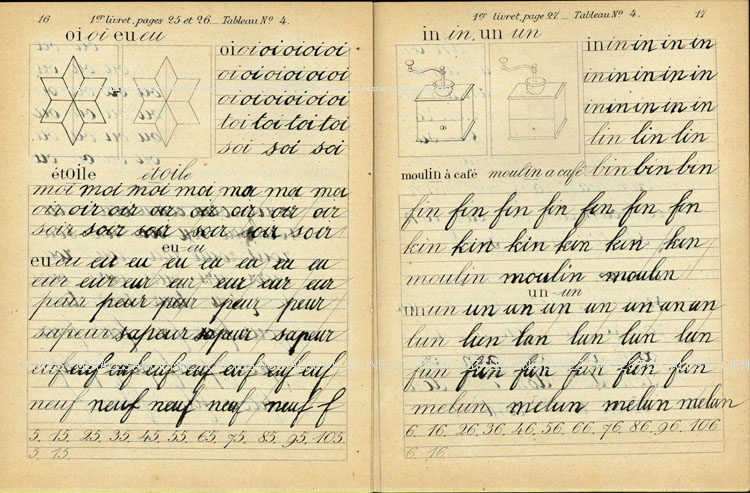 16 1er livret, pages 25 et 26 _ Tableau No 4.
oi oi eu eu
oi oi oi oi oi oi oi
oi oi oi oi oi oi
oi oi oi oi oi oi
toi toi toi toi
soi soi soi
étoile étoile
moi moi moi moi moi moi moi
oir oir oir oir oir oir oir oir
soir soir soir soir soir soir
eu eu
eu eu eu eu eu eu eu eu eu
eur eur eur eur eur eur eur
peur peur peur peur peur
sapeur sapeur sapeur sapeur
euf euf euf euf euf euf euf
neuf neuf neuf neuf neuf f
5. 15. 25. 35. 45. 55. 65. 75. 85. 95. 105.
5. 15.
1er livret, page 27 _ Tableau No 4. 17
in in, un un
in in in in in in
in in in in in
in in in in in in
lin lin lin
bin bin bin
moulin à café moulin a café
fin fin fin fin fin fin fin
kin kin kin kin kin kin
moulin moulin moulin
un un
un un un un un un un an
lun lun lun lun lun lun
fun fun fun fun fun fun
melun melun melun melun
6. 16. 26. 36. 46. 56. 66. 76. 86. 96. 106
6. 16.